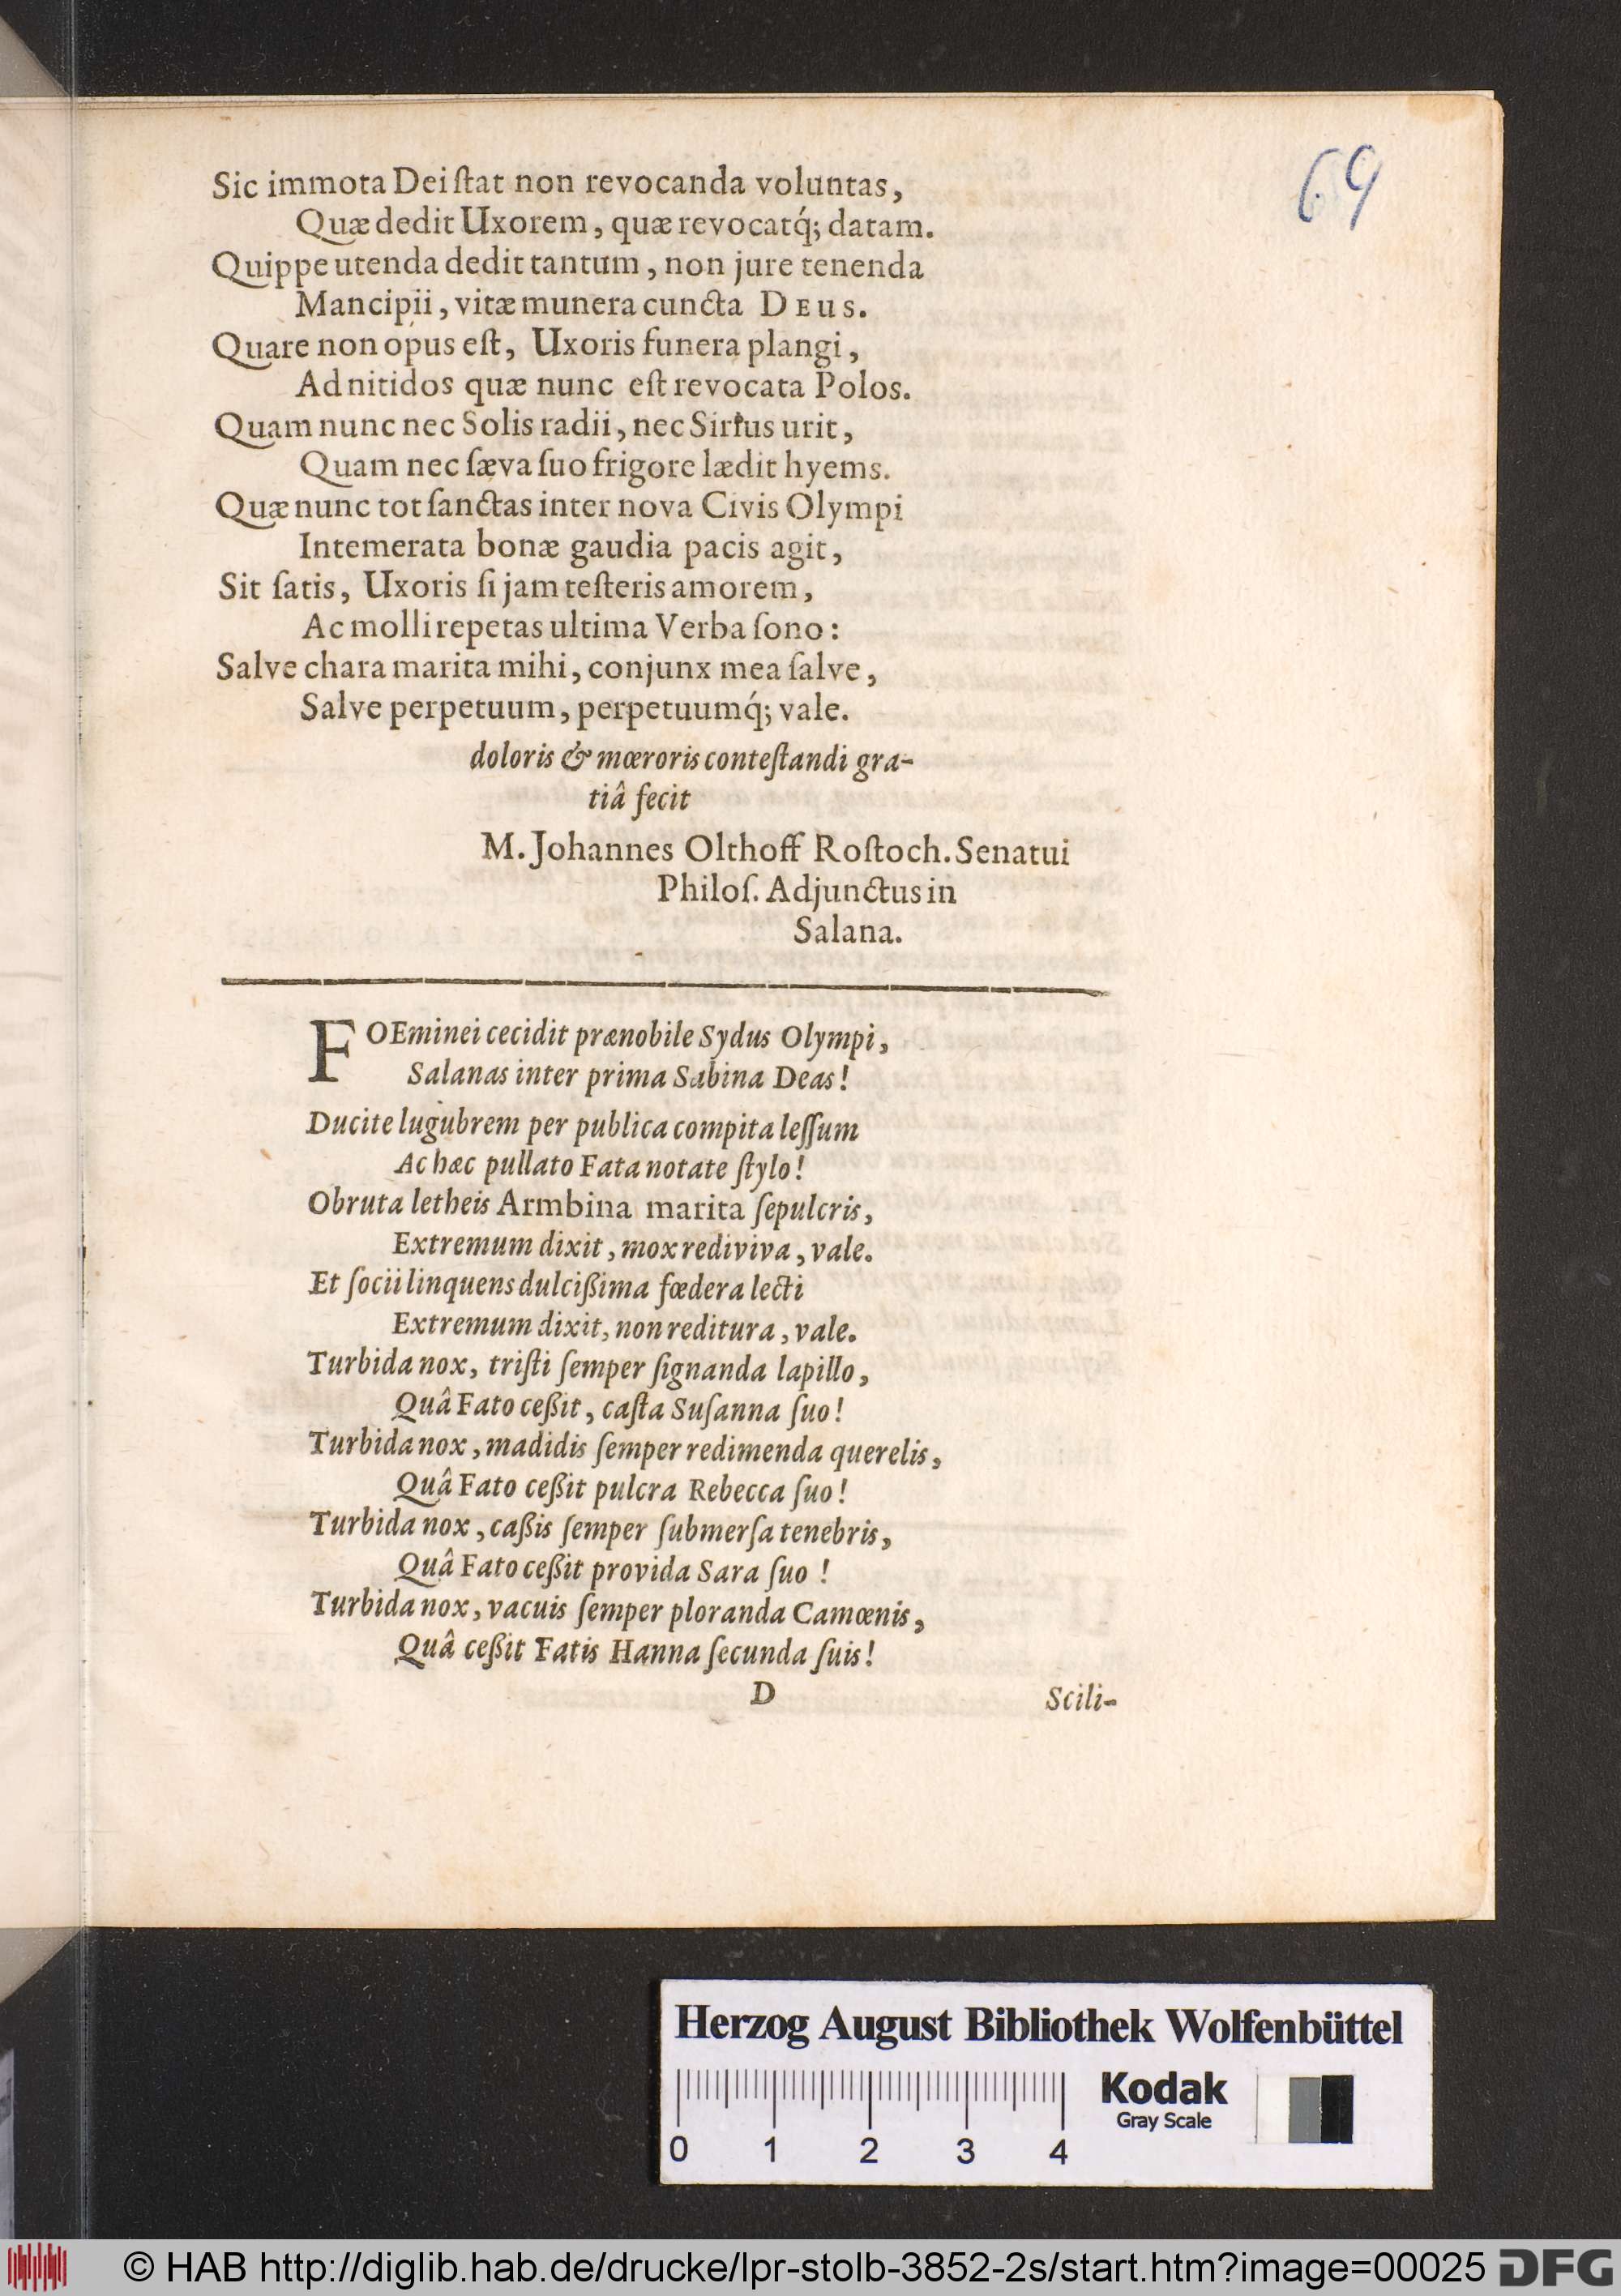 69
Sic immota Dei ſtat non revocanda voluntas,
Quæ dedit Uxorem, quæ revocatq́; datam.
Quippe utenda dedit tantum, non jure tenenda
Mancipii, vitæ munera cuncta DEUS.
Quare non opus eſt, Uxoris funera plangi,
Ad nitidos quæ nunc eſt revocata Polos.
Quam nunc nec Solis radii, nec Sirius urit,
Quam nec ſæva ſuo frigore lædit hyems.
Quæ nunc tot ſanctas inter nova Civis Olympi
Intemerata bonæ gaudia pacis agit,
Sit ſatis, Uxoris ſi jam teſteris amorem,
Ac molli repetas ultima Verba ſono:
Salve chara marita mihi, conjunx mea ſalve,
Salve perpetuum, perpetuumq́; vale.
doloris & mœroris conteſtandi gra-
tiâ fecit
M. Johannes Olthoff Roſtoch. Senatui
Philoſ. Adjunctus in
Salana.
FOEminei cecidit prænobile Sydus Olympi,
Salanas inter prima Sabina Deas!
Ducite lugubrem per publica compita leſſum
Ac hæc pullato Fata notate ſtylo!
Obruta letheis Armbina marita ſepulcris,
Extremum dixit, mox rediviva, vale.
Et ſocii linquens dulcißima fœdera lecti
Extremum dixit, non reditura, vale.
Turbida nox, triſti ſemper ſignanda lapillo,
Quâ Fato ceßit, caſta Suſanna ſuo!
Turbida nox, madidis ſemper redimenda querelis,
Quâ Fato ceßit pulcra Rebecca ſuo!
Turbida nox, caßis ſemper ſubmerſa tenebris,
Quâ Fato ceßit provida Sara ſuo!
Turbida nox, vacuis ſemper ploranda Camœnis,
Quâ ceßit Fatis Hanna ſecunda ſuis!
D Scili-
Herzog August Bibliothek Wolfenbüttel
Kodak
Gray Scale
0 1 2 3 4
© HAB http://diglib.hab.de/drucke/lpr-stolb-3852-2s/start.htm?image=00025 DFG